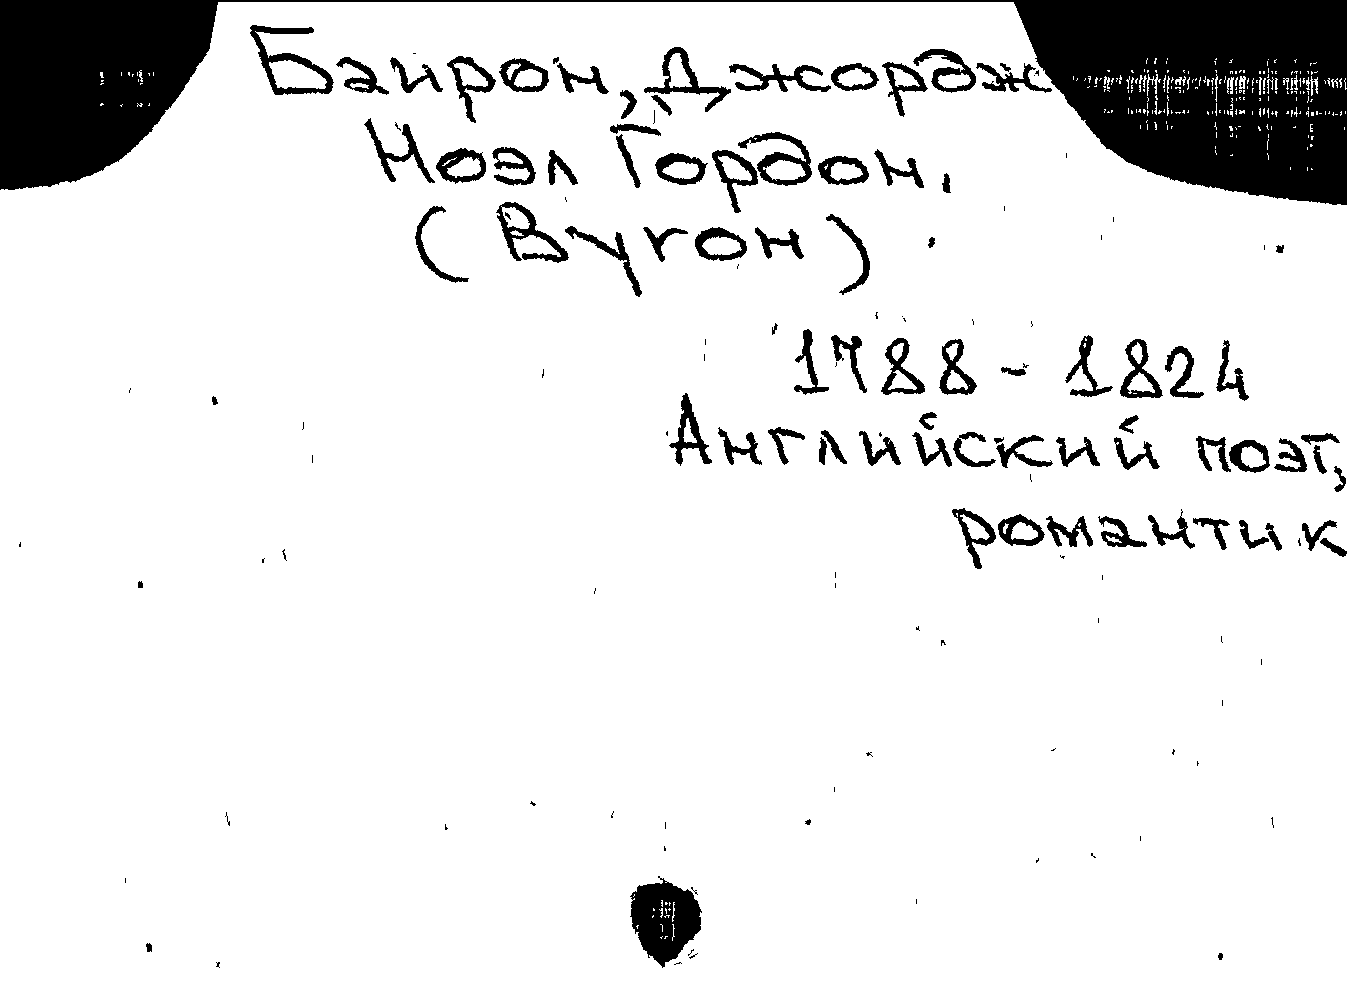 Баирон, Джордж
Ноэл Гордон.
(Вугон)
1788 - 1824
Английский поэт,
романтик